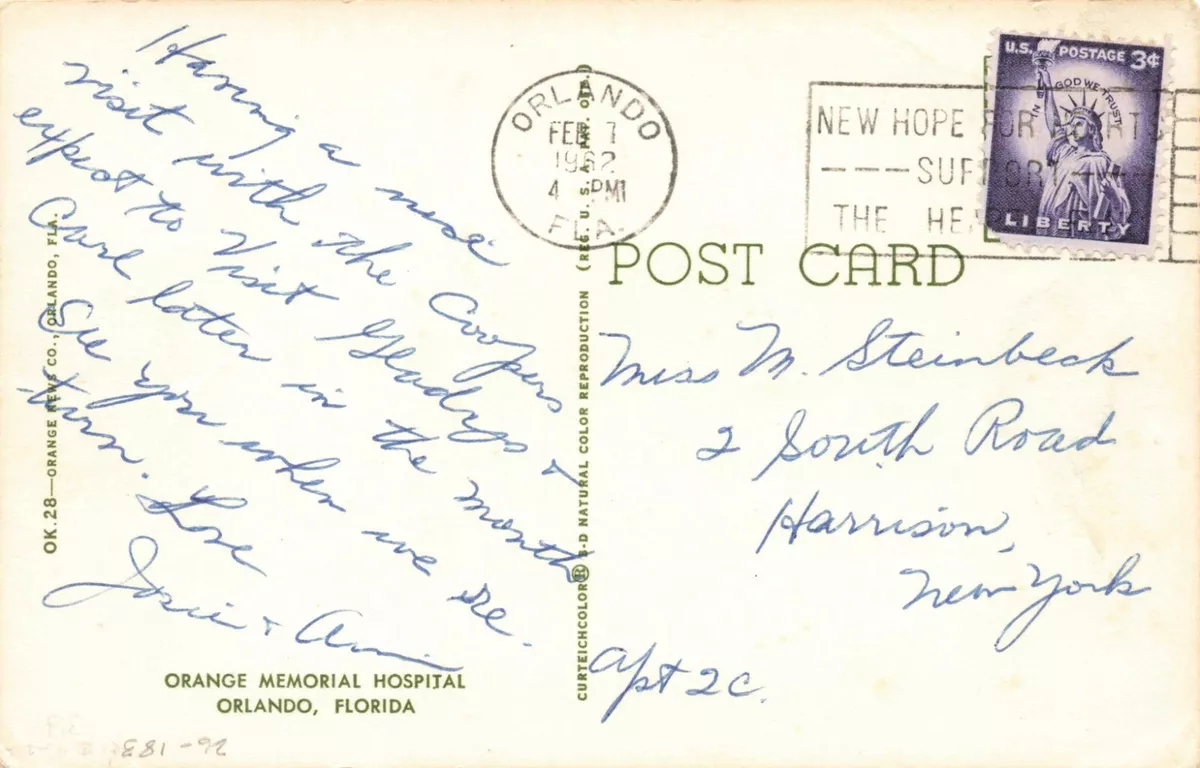 Having a nice
visit with the Coopers
expect to visit Gladys &
Carl later in the month
See you when we re-
turn.
Love
Josie &
ORANGE MEMORIAL HOSPITAL
ORLANDO, FLORIDA
OK.28—ORANGE NEWS CO., ORLANDO, FLA.
CURTEICHCOLOR® 3-D NATURAL COLOR REPRODUCTION (REG. U. S. A. PAT. OFF.)
ORLANDO
FEB 7
1962
4 PM
FLA.
NEW HOPE FOR HEARTS
SUPPORT
THE HEART
U.S. POSTAGE 3¢
IN GOD WE TRUST
LIBERTY
POST CARD
Miss M. Steinbeck
2 South Road
Harrison,
New York
Apt 2C.
26-183